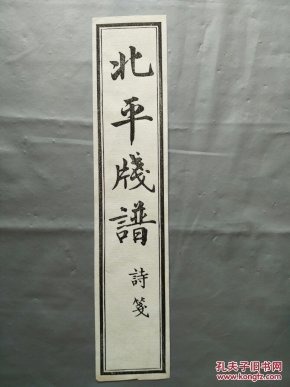 北平牋譜
詩箋
孔夫子旧书网